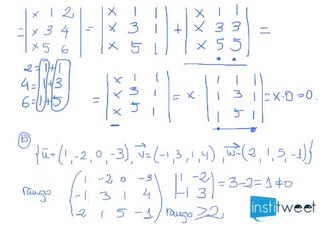 = |x 1 2; x 3 4; x 5 6| = |x 1 1; x 3 1; x 5 1| + |x 1 1; x 3 3; x 5 5| =
2=1+1
4=1+3
6=1+5
= |x 1 1; x 3 1; x 5 1| = x · |1 1 1; 1 3 1; 1 5 1| = x·0=0.
b) {u⃗=(1,-2,0,-3), v⃗=(-1,3,1,4), w⃗=(2,1,5,-1)}
rango (1 -2 0 -3; -1 3 1 4; 2 1 5 -1) |1 -2; -1 3| = 3-2=1≠0
rango ≥2
institweet